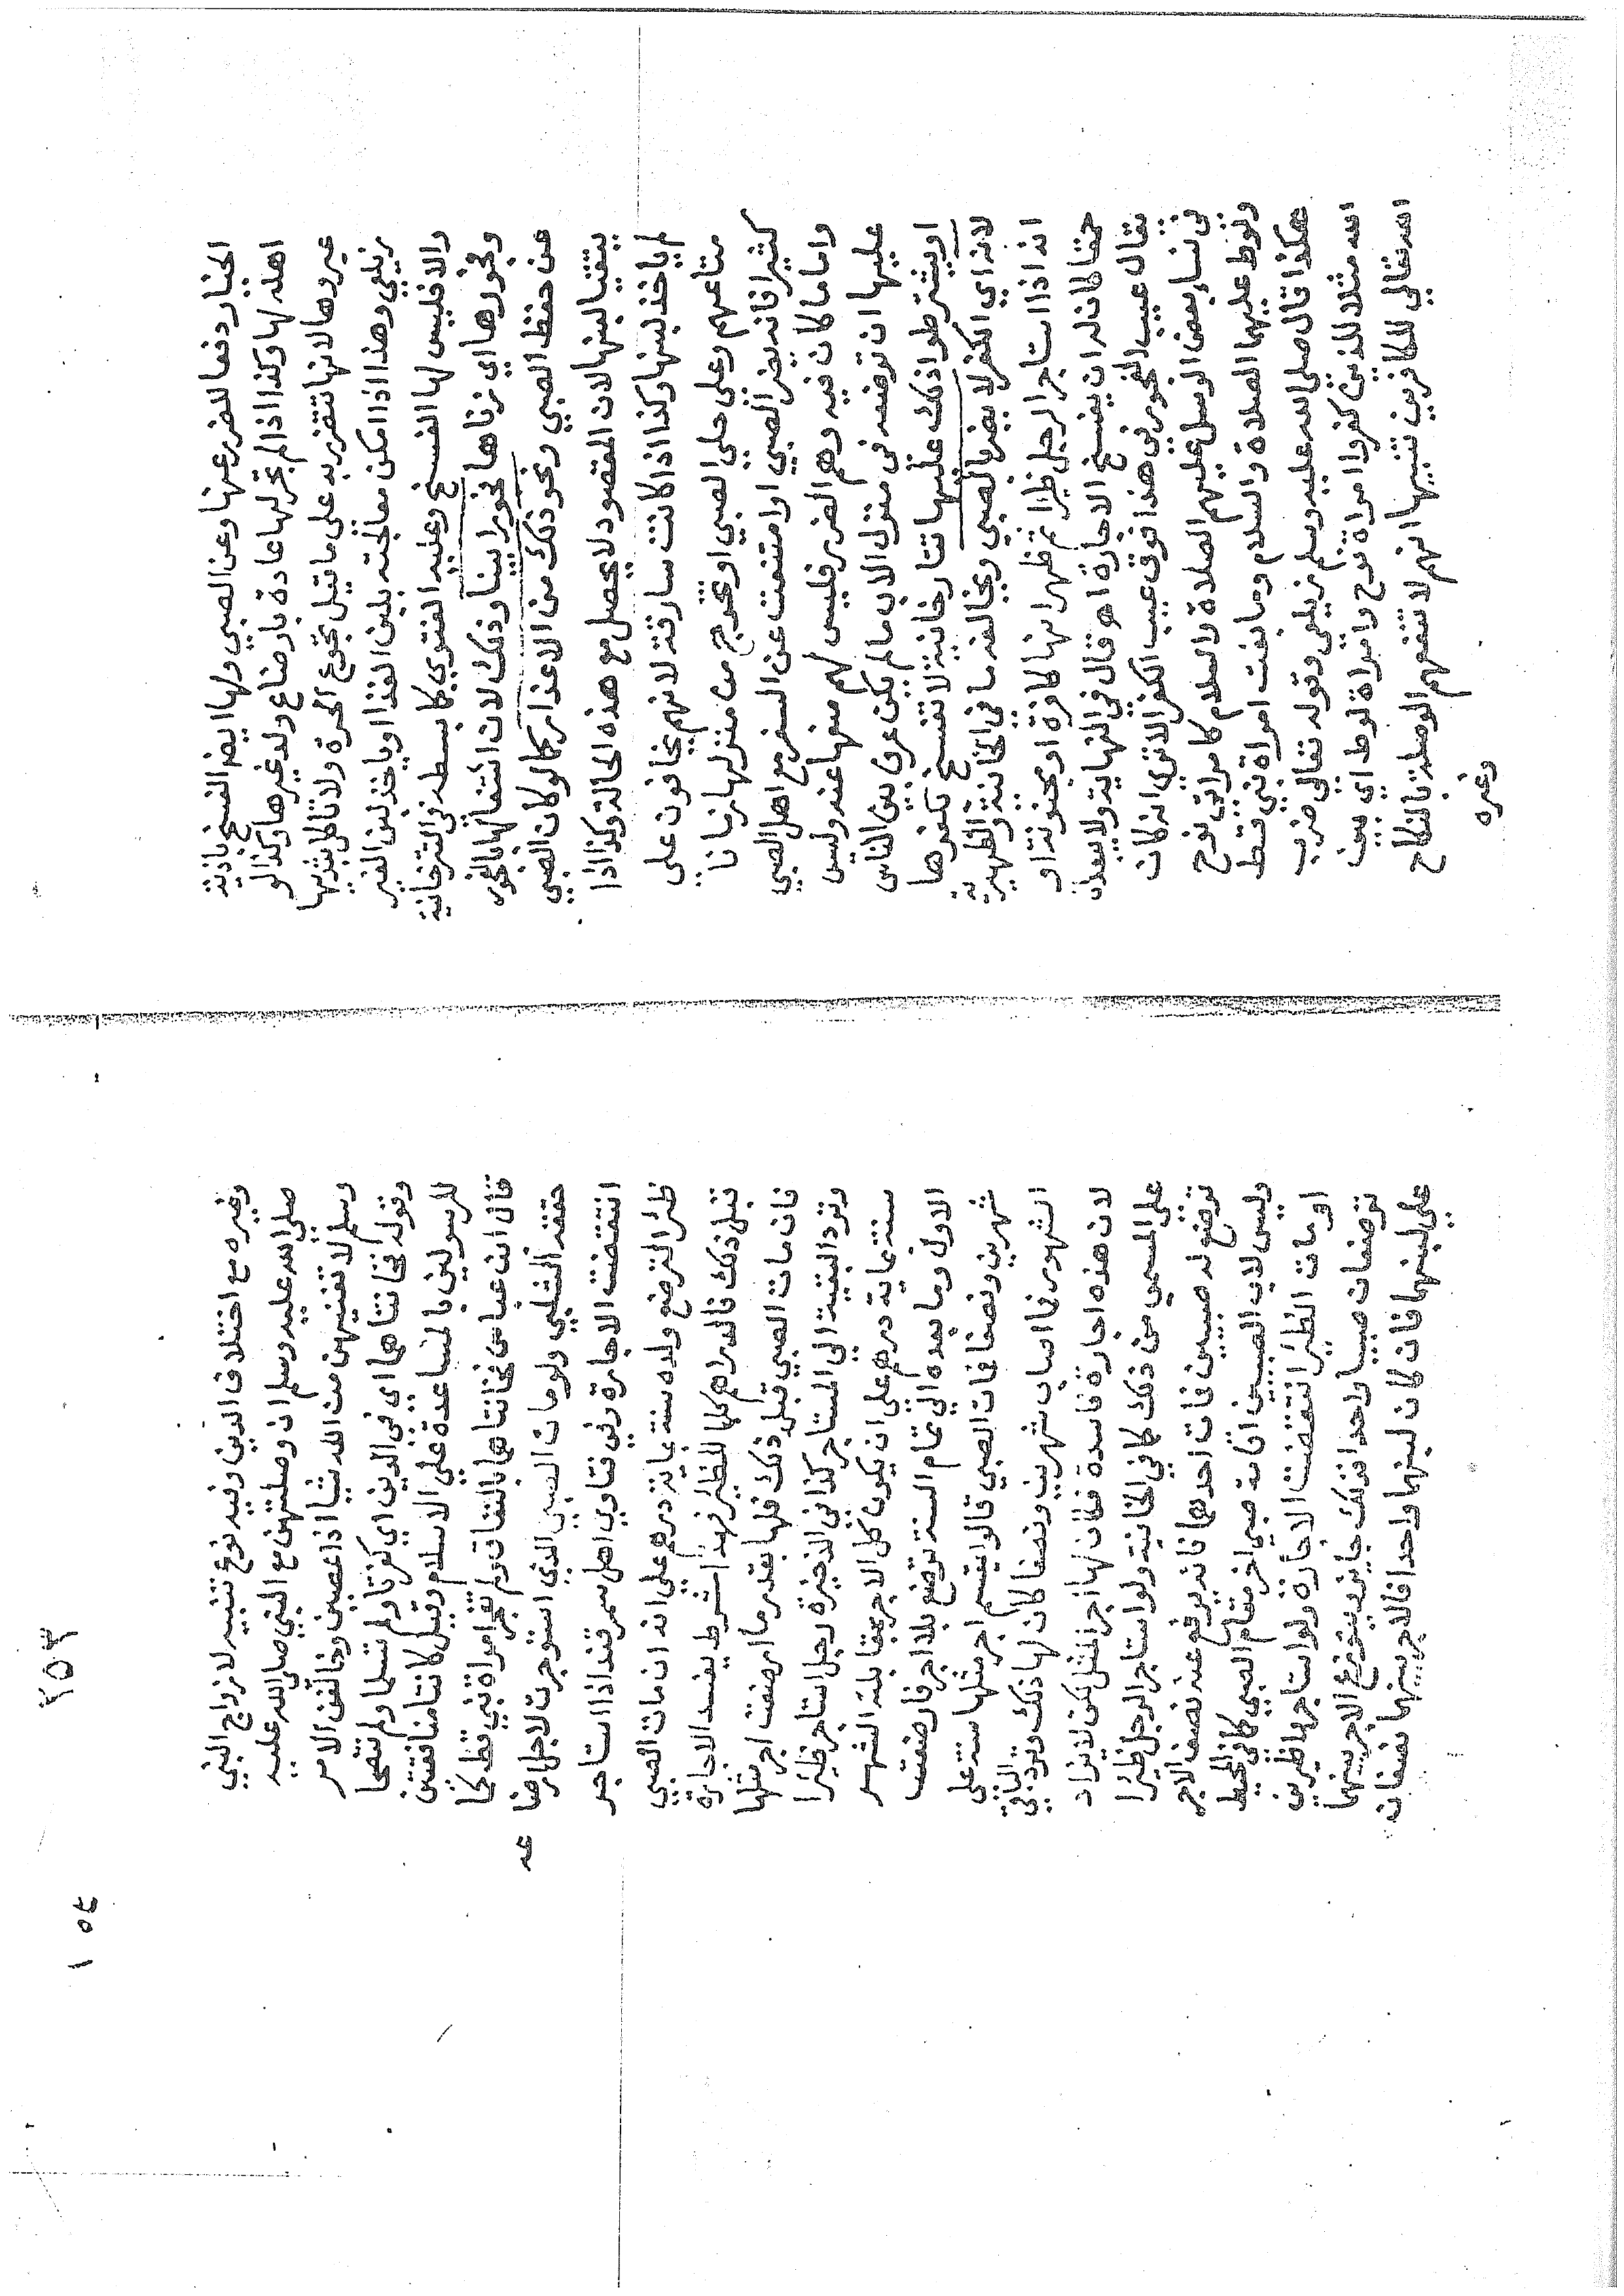 الخيار دفعا للضرر عنها وعن الصبي ولها ايضا الفسخ باذية
اهله لها وكذا اذا لم تجر لها عادة بارضاع ولد غيرها وكذا لو
عيروها لانها تتضرر به على ما قيل تجوع الحرة ولا تاكل بثدييها
زيلعي وهذا اذا امكن معالجته بلبن الغذا او ياخذ لبن الغير
والا فليس لها الفسخ وعليه الفتوي كما بسطه في التترخانية
وفجورها اي زناها فجورا بينا وذلك لان اشتغالها بالفجور
عن حفظ الصبي ونحو ذلك من الاعذار كما لو كان الصبي
يتقيا لبنها لان المقصود لا يحصل مع هذه الحالة وكذا اذا
لم ياخذ لبنها وكذا اذا كانت سارقة لانهم يخافون على
متاعهم وعلى حلي الصبي او تخرج من منزلها زمانا
كثيرا فانه يضر الصبي او امتنعت عن السفر مع اهل الصبي
واما ما كان فيه وهم الضرر فليس لهم منعها عنه وليس
عليها ان ترضعه في منزل الاب ما لم يكن عرف بين الناس
او يشترطوا ذلك عليها تتارخانية لا تفسخ بكفرها
لانه اي الكفر لا يضر بالصبي ويخالفه ما في الخانية والظهيرية
انه اذا استاجر الرجل ظيرا ثم ظهر انها كافرة او مجنونة او
حمقا كان له ان يفسخ الاجارة اهـ قال في النهاية ولا يبعد ان
يقال عيب الفجور في هذا فوق عيب الكفر الا تري انه كان
في نساء بعض الرسل عليهم الصلاة والسلام كامراتي نوح
ولوط عليهما الصلاة والسلام وما بغت امراة نبي قط
هكذا قال صلى الله عليه وسلم زيلعي وقوله تعالى ضرب
الله مثلا للذين كفروا امراة نوح وامراة لوط اي بين
الله تعالي للكافرين تنبيها انهم لا تنفعهم الوصلة بالنكاح
وغيره
وغيره مع اختلاف الدين وفيه نوع تنبيه لازواج النبي
صلى الله عليه وسلم ان وصلتهن مع النبي صلى الله عليه
وسلم لا تغنيهن من الله شيا اذا عصين وخالفن الامر
وقوله فخانتاهما اي في الدين اي كفرتا ولم تسلما ولم تنصحا
للرسولين بالمساعدة علي الاسلام وقيل كانتا منافقتين
قال ابن عباس فخانتاهما بالنفاق ولم تفجر امراة نبي قط كما
حققه الشلبي ولو مات الصبي الذي استوجرت لاجل ارضا
عه
انتقضت الاجارة وفي فتاوي اهل سمرقند اذا استاجر
ظئرا لترضع ولده سنة بماية درهم علي انه ان مات الصبي
قبل ذلك فالدراهم كلها للظئر فهذا شرط يفسد الاجارة
فان مات الصبي قبل ذلك فلها بقدر ما ارضعت اجر مثلها
وترد البقية الي المستاجر كذا في الذخيرة رجل استاجر ظئرا
سنة بماية درهم على ان يكون كل الاجر بمقابلة الشهر
الاول وما بعده الي تمام السنة ترضع بلا اجر فارضعت
شهرين ونصفا فمات الصبي قالوا يقسم اجر مثلها سنة على
الشهور فما اصاب شهرين ونصفا كان لها ذلك وترد الباقي
لان هذه اجارة فاسدة فكان لها اجر المثل لكن لا يزاد
على المسمي من ذلك كما في الخانية ولو استاجر الرجل ظئرا
ترضع له صبيين فمات احدهما فانه يرفع عنه نصف الاجر
وليس لاب الصبيين اقامة صبي اخر مقام الصبي كما في المحيط
او ماتت الظئر انتقضت الاجارة ولو استاجرها ظئرين
ترضعان صبيا واحدا فذلك جايز ويتوزع الاجر بينهما
علي لبنهما فان كان لبنهما واحدا فالاجر بينهما نصفان
٢٥٣
١٥٤